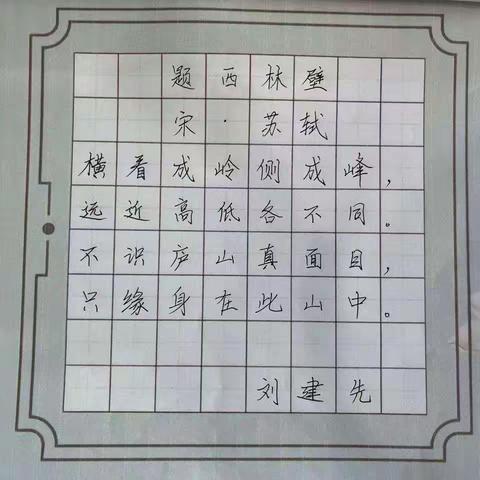 题西林壁
宋·苏轼
横看成岭侧成峰，
远近高低各不同。
不识庐山真面目，
只缘身在此山中。
刘建先